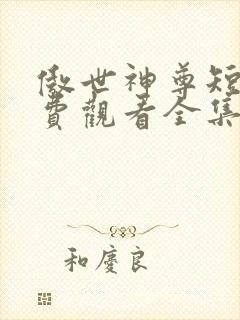 傲世神尊短
費觀看全集
和慶良